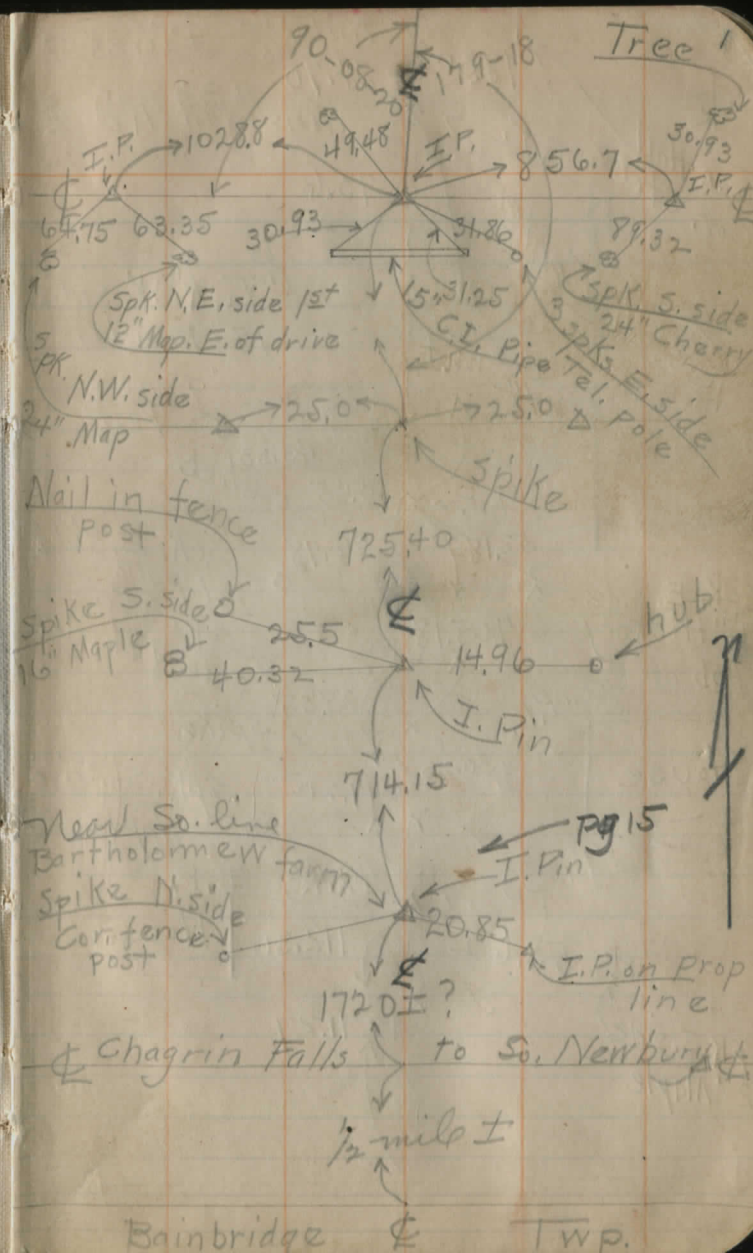 Tree 1
90-08-20
℄
179-18
I.P.
1028.8
49.48
I.P.
856.7
30.93
I.P.
℄
℄
64.75
63.35
30.93
31.86
89.32
Spk. N.E. side 1st
12" Map. E. of drive
15"
31.25
C.I. Pipe
Spk. S. side
24" Cherry
3 spks E. side
Tel. pole
Spk.
N.W. side
24" Map
25.0
25.0
Spike
Nail in fence
post
725.40
℄
Spike S. side
16" Maple
25.5
40.32
14.96
hub
I. Pin
714.15
Near So. line
Bartholomew farm
pg 15
I. Pin
Spike N. side
Cor. fence
post
20.85
I.P. on Prop
line
℄
1720± ?
℄ Chagrin Falls to So. Newbury ℄
1/2 mile ±
Bainbridge ℄ Twp.